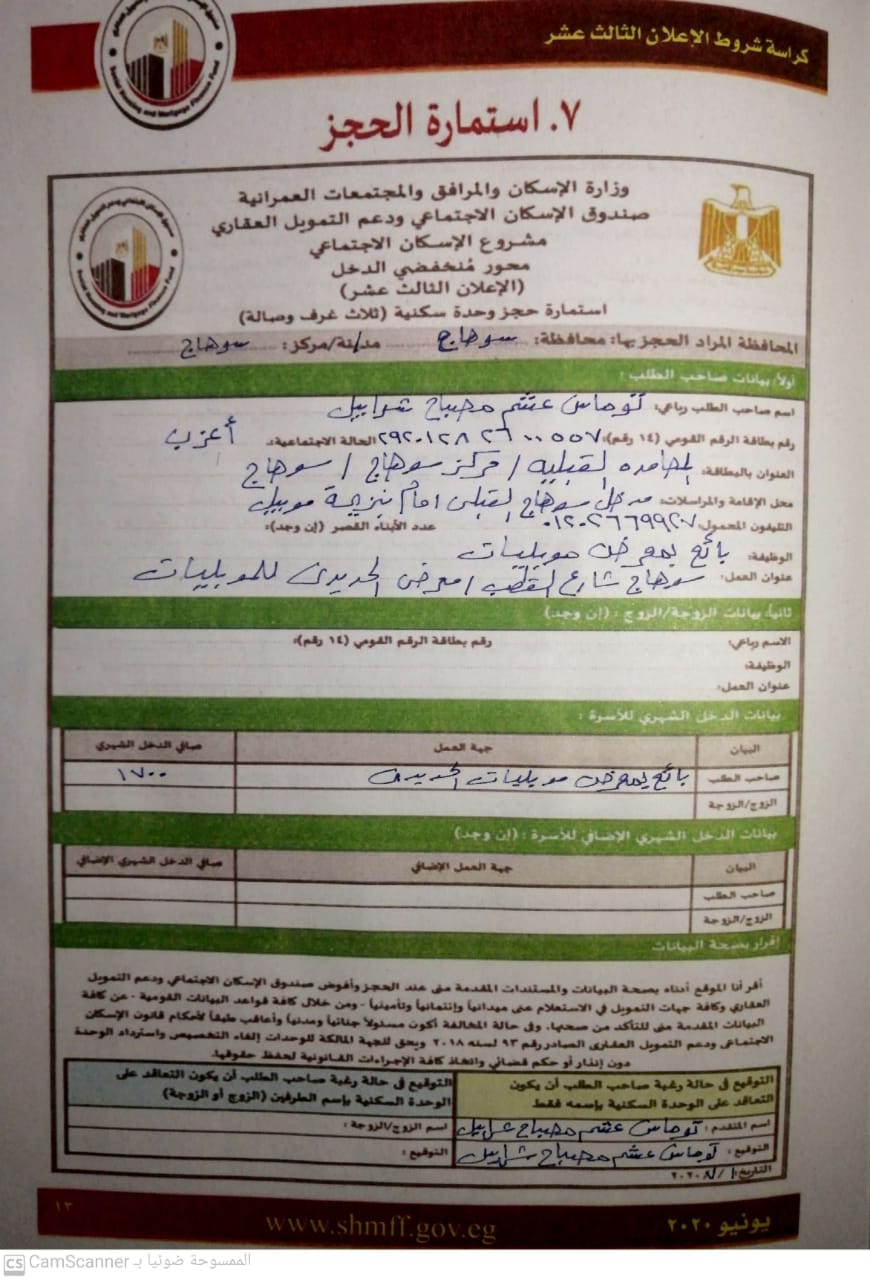 كراسة شروط الإعلان الثالث عشر
٧. استمارة الحجز
وزارة الإسكان والمرافق والمجتمعات العمرانية
صندوق الإسكان الاجتماعي ودعم التمويل العقاري
مشروع الإسكان الاجتماعي
محور مُنخفضي الدخل
(الإعلان الثالث عشر)
استمارة حجز وحدة سكنية (ثلاث غرف وصالة)
Social Housing and Mortgage Finance Fund
المحافظة المراد الحجز بها: محافظة: سوهاج مدينة/مركز: سوهاج
أولاً بيانات صاحب الطلب :
اسم صاحب الطلب رباعي: توماس عشم مصباح شرابيل
رقم بطاقة الرقم القومي (١٤ رقم): ٢٩٢٠١٢٨٢٦٠٠٥٥٧ الحالة الاجتماعية: أعزب
العنوان بالبطاقة: المحامده القبليه / مركز سوهاج / سوهاج
محل الإقامة والمراسلات: مدخل سوهاج القبلى امام بنزيمة موبيل
التليفون المحمول: ٠١٢٠٢٦٦٩٩٢٧ عدد الأبناء القصر (إن وجد):
الوظيفة: بائع بمعرض موبليات
عنوان العمل: سوهاج شارع القطب / معرض الحديدى للموبليات
ثانياً، بيانات الزوجة/الزوج : (إن وجد)
الاسم رباعي: رقم بطاقة الرقم القومي (١٤ رقم):
الوظيفة:
عنوان العمل:
بيانات الدخل الشهري للأسرة :
البيان جهة العمل صافي الدخل الشهري
صاحب الطلب بائع بمعرض موبليات الحديدى ١٧٠٠
الزوج/الزوجة
بيانات الدخل الشهري الإضافي للأسرة : (إن وجد)
البيان جهة العمل الإضافي صافي الدخل الشهري الإضافي
صاحب الطلب
الزوج/الزوجة
إقرار بصحة البيانات
أقر أنا الموقع أدناه بصحة البيانات والمستندات المقدمة منى عند الحجز وأفوض صندوق الإسكان الاجتماعي ودعم التمويل
العقاري وكافة جهات التمويل في الاستعلام عنى ميدانياً وإئتمانياً وتأمينياً - ومن خلال كافة قواعد البيانات القومية - عن كافة
البيانات المقدمة منى للتأكد من صحتها، وفى حالة المخالفة أكون مسئولاً جنائياً ومدنياً وأعاقب طبقاً لأحكام قانون الإسكان
الاجتماعى ودعم التمويل العقارى الصادر رقم ٩٣ لسنه ٢٠١٨ ويحق للجهة المالكة للوحدات إلغاء التخصيص واسترداد الوحدة
دون إنذار أو حكم قضائي واتخاذ كافة الإجراءات القانونية لحفظ حقوقها.
التوقيع فى حالة رغبة صاحب الطلب أن يكون
التعاقد على الوحدة السكنية بإسمه فقط
التوقيع فى حالة رغبة صاحب الطلب أن يكون التعاقد على
الوحدة السكنية بإسم الطرفين (الزوج أو الزوجة)
اسم المتقدم: توماس عشم مصباح شرابيل اسم الزوج/الزوجة :
التوقيع : توماس عشم مصباح شرابيل التوقيع :
يونيو ٢٠٢٠ www.shmff.gov.eg ١٣
CS CamScanner الممسوحة ضوئيا بـ